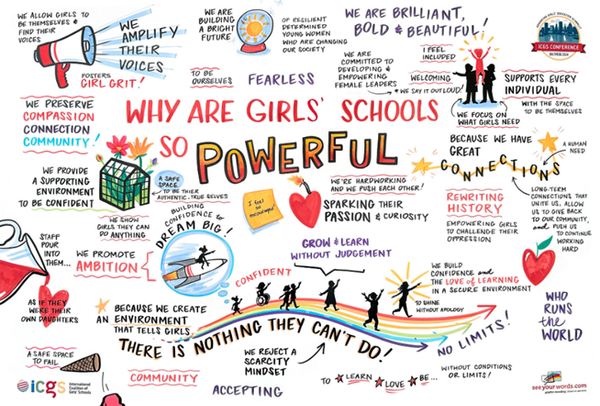 WE ALLOW GIRLS TO
BE THEMSELVES &
FIND THEIR
VOICES
WE
AMPLIFY
THEIR
VOICES
FOSTERS
GIRL GRIT!
WE ARE
BUILDING
A BRIGHT
FUTURE
OF RESILIENT
DETERMINED
YOUNG WOMEN
WHO ARE CHANGING
OUR SOCIETY
WE ARE BRILLIANT,
BOLD & BEAUTIFUL!
ICGS CONFERENCE
TO BE
OURSELVES
FEARLESS
WE ARE
COMMITTED TO
DEVELOPING &
EMPOWERING
FEMALE LEADERS
I FEEL
INCLUDED
WELCOMING
WE SAY IT OUT LOUD!
SUPPORTS EVERY
INDIVIDUAL
WITH THE SPACE
TO BE THEMSELVES
WE FOCUS ON
WHAT GIRLS NEED
WE PRESERVE
COMPASSION
CONNECTION
COMMUNITY!
WHY ARE GIRLS' SCHOOLS
SO POWERFUL
BECAUSE WE HAVE
GREAT
CONNECTIONS
A HUMAN
NEED
LONG-TERM
CONNECTIONS THAT
UNITE US, ALLOW
US TO GIVE BACK
TO OUR COMMUNITY,
AND PUSH US
TO CONTINUE
WORKING
HARD
WE PROVIDE
A SUPPORTING
ENVIRONMENT
TO BE CONFIDENT
A SAFE
SPACE
TO BE THEIR
AUTHENTIC, TRUE SELVES
WE SHOW
GIRLS THEY CAN
DO ANYTHING
I feel
so
encouraged
WE'RE HARDWORKING
AND WE PUSH EACH OTHER!
SPARKING THEIR
PASSION & CURIOSITY
REWRITING
HISTORY
EMPOWERING GIRLS
TO CHALLENGE THEIR
OPPRESSION
BUILDING
CONFIDENCE to
DREAM BIG!
STAFF
POUR
INTO
THEM...
WE PROMOTE
AMBITION
AS IF THEY
WERE THEIR
OWN DAUGHTERS
GROW & LEARN
WITHOUT JUDGEMENT
CONFIDENT
WE BUILD
CONFIDENCE and
THE LOVE of LEARNING
IN A SECURE ENVIRONMENT
TO SHINE
WITHOUT APOLOGY
BECAUSE WE CREATE
AN ENVIRONMENT
THAT TELLS GIRLS
THERE IS NOTHING THEY CAN'T DO!
NO LIMITS!
WITHOUT CONDITIONS
OR LIMITS!
WHO
RUNS
the
WORLD
A SAFE SPACE
TO FAIL
COMMUNITY
WE REJECT A
SCARCITY
MINDSET
ACCEPTING
TO LEARN LOVE BE...
icgs International
Coalition of
Girls' Schools
seeyourwords.com